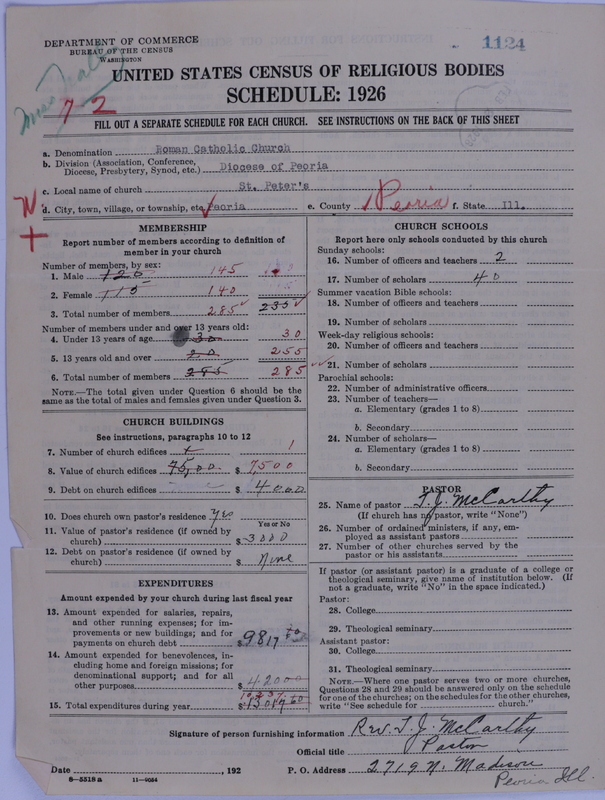 DEPARTMENT OF COMMERCE
BUREAU OF THE CENSUS
WASHINGTON
1124
72
UNITED STATES CENSUS OF RELIGIOUS BODIES
SCHEDULE: 1926
FILL OUT A SEPARATE SCHEDULE FOR EACH CHURCH. SEE INSTRUCTIONS ON THE BACK OF THIS SHEET
a. Denomination Roman Catholic Church
b. Division (Association, Conference, Diocese, Presbytery, Synod, etc.) Diocese of Peoria
c. Local name of church St. Peter's
d. City, town, village, or township, etc. Peoria e. County Peoria f. State Ill.
MEMBERSHIP
Report number of members according to definition of
member in your church
Number of members, by sex:
1. Male 120 145
2. Female 115 140
3. Total number of members 285 235
Number of members under and over 13 years old:
4. Under 13 years of age 30 30
5. 13 years old and over 255
6. Total number of members 285 285
NOTE.—The total given under Question 6 should be the
same as the total of males and females given under Question 3.
CHURCH BUILDINGS
See instructions, paragraphs 10 to 12
7. Number of church edifices 1 1
8. Value of church edifices 75,00 $ 7,500
9. Debt on church edifices $ 4000
10. Does church own pastor's residence Yes
Yes or No
11. Value of pastor's residence (if owned by
church) $ 3000
12. Debt on pastor's residence (if owned by
church) $ None
EXPENDITURES
Amount expended by your church during last fiscal year
13. Amount expended for salaries, repairs,
and other running expenses; for im-
provements or new buildings; and for
payments on church debt $ 9817 60
14. Amount expended for benevolences, in-
cluding home and foreign missions; for
denominational support; and for all
other purposes $ 42000
15. Total expenditures during year $
CHURCH SCHOOLS
Report here only schools conducted by this church
Sunday schools:
16. Number of officers and teachers 2
17. Number of scholars 40
Summer vacation Bible schools:
18. Number of officers and teachers
19. Number of scholars
Week-day religious schools:
20. Number of officers and teachers
21. Number of scholars
Parochial schools:
22. Number of administrative officers
23. Number of teachers—
a. Elementary (grades 1 to 8)
b. Secondary
24. Number of scholars—
a. Elementary (grades 1 to 8)
b. Secondary
PASTOR
25. Name of pastor T. J. McCarthy
(If church has no pastor, write "None")
26. Number of ordained ministers, if any, em-
ployed as assistant pastors
27. Number of other churches served by the
pastor or his assistants
If pastor (or assistant pastor) is a graduate of a college or
theological seminary, give name of institution below. (If
not a graduate, write "No" in the space indicated.)
Pastor:
28. College
29. Theological seminary
Assistant pastor:
30. College
31. Theological seminary
NOTE.—Where one pastor serves two or more churches,
Questions 28 and 29 should be answered only on the schedule
for one of the churches; on the schedules for the other churches,
write "See schedule for church."
Signature of person furnishing information Rev. T. J. McCarthy
Official title Pastor
Date , 192 P. O. Address 2719 N. Madison
Peoria Ill.
8-5518 a 11-9054